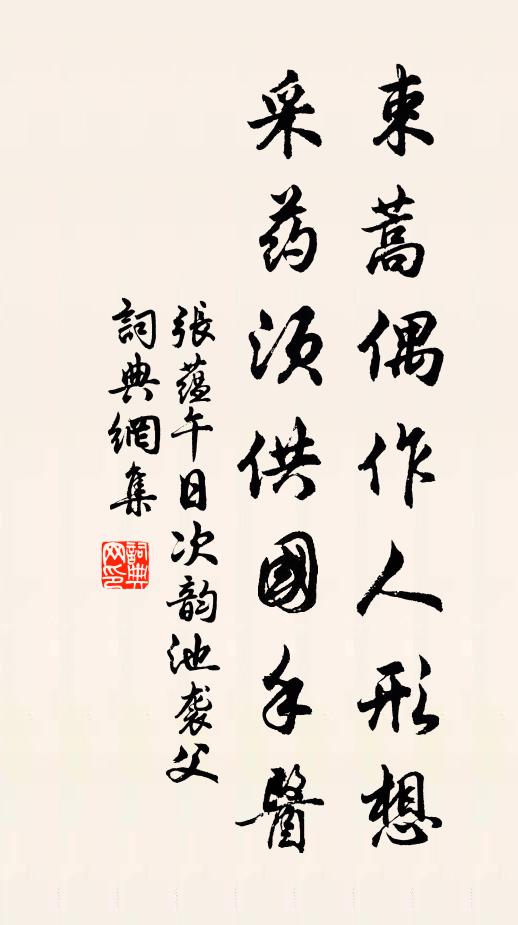 束蒿偶作人形想
采药须供國手醫
張蕴午日次韵池袭父
詞典網集
詞典网印